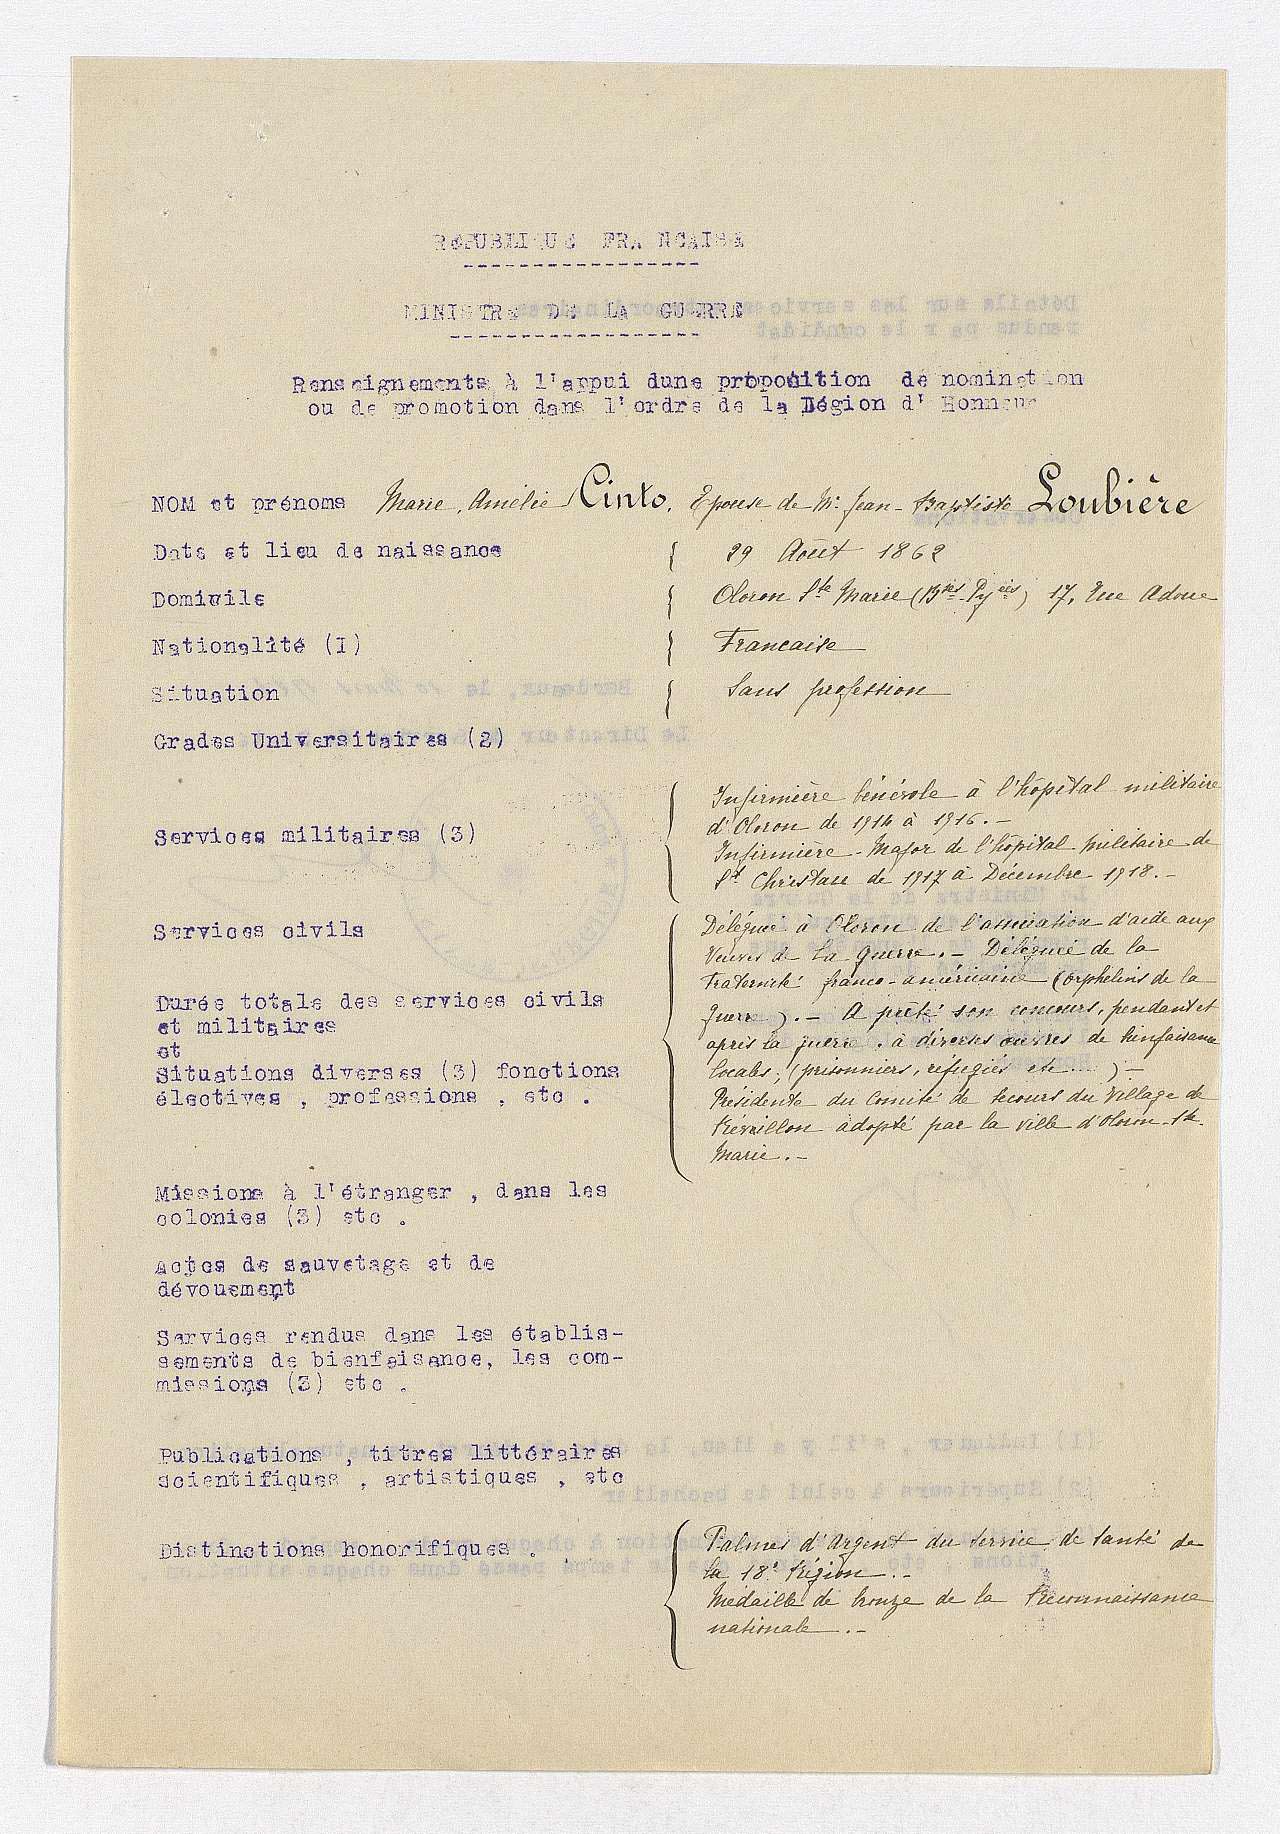 REPUBLIQUE FRANCAISE
MINISTRE DE LA GUERRE
Renseignements à l'appui dune proposition de nomination
ou de promotion dans l'ordre de la Légion d' Honneur
NOM et prénoms Marie, Amélie Cinto, Epouse de Mr Jean-Baptiste Loubière
Date et lieu de naissance { 29 Août 1862
Domicile { Oloron Ste Marie (Bses-Pyrées) 17, Rue Adoue
Nationalité (I) { Francaise
Situation { Sans profession
Grades Universitaires (2)
Services militaires (3)
Infirmière bénévole à l'hôpital militaire
d'Oloron de 1914 à 1916.-
Infirmière-Major de l'hôpital militaire de
St Christau de 1917 à Décembre 1918.-
Services civils
Durée totale des services civils
et militaires
et
Situations diverses (3) fonctions
électives , professions , etc .
Déléguée à Oloron de l'association d'aide aux
Veuves de la guerre.- Déléguée de la
Fraternité franco-américaine (orphelins de la
guerre).- A prêté son concours, pendant et
après la guerre, à diverses œuvres de bienfaisance
locales; (prisonniers, réfugiés etc...)-
Présidente du Comité de secours du village de
Revillon adopté par la ville d'Oloron-Ste-
Marie.-
Missions à l'étranger , dans les
colonies (3) etc .
Actes de sauvetage et de
dévouement
Services rendus dans les établis-
sements de bienfaisance, les com-
missions (3) etc .
Publications , titres littéraires
scientifiques , artistiques , etc
Distinctions honorifiques .
Palmes d'Argent du Service de Santé de
la 18e Région.-
Médaille de bronze de la Reconnaissance
nationale.-